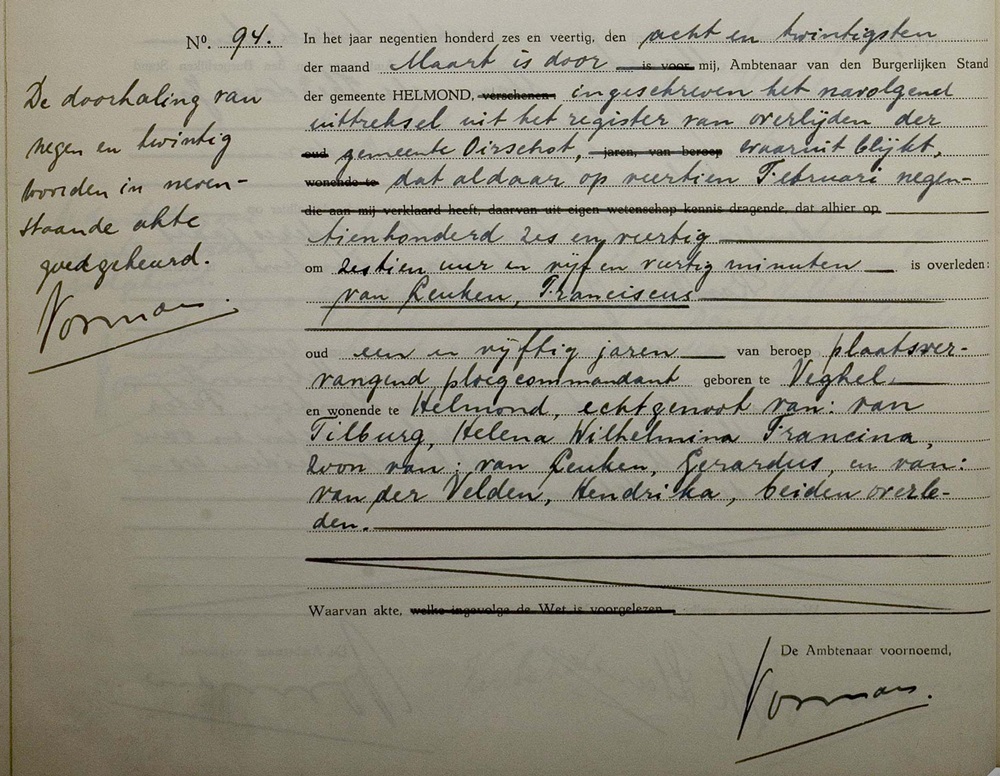 Nº. 94.
De doorhaling van
negen en twintig
woorden in neven-
staande akte
goedgekeurd.
In het jaar negentien honderd zes en veertig, den acht en twintigsten
der maand Maart is door is voor mij, Ambtenaar van den Burgerlijken Stand
der gemeente HELMOND, verschenen ingeschreven het navolgend
uittreksel uit het register van overlijden der
oud gemeente Oirschot, jaren, van beroep waaruit blijkt,
wonende te dat aldaar op veertien Februari negen-
die aan mij verklaard heeft, daarvan uit eigen wetenschap kennis dragende, dat alhier op
tienhonderd zes en veertig
om zestien uur en vijf en veertig minuten is overleden:
van Leuken, Franciscus
oud een en vijftig jaren van beroep plaatsver-
vangend ploegcommandant geboren te Veghel,
en wonende te Helmond, echtgenoot van: van
Tilburg, Helena Wilhelmina Francina,
zoon van: van Leuken, Gerardus, en van:
van der Velden, Hendrika, beiden overle-
den.
Waarvan akte, welke ingevolge de Wet is voorgelezen
De Ambtenaar voornoemd,